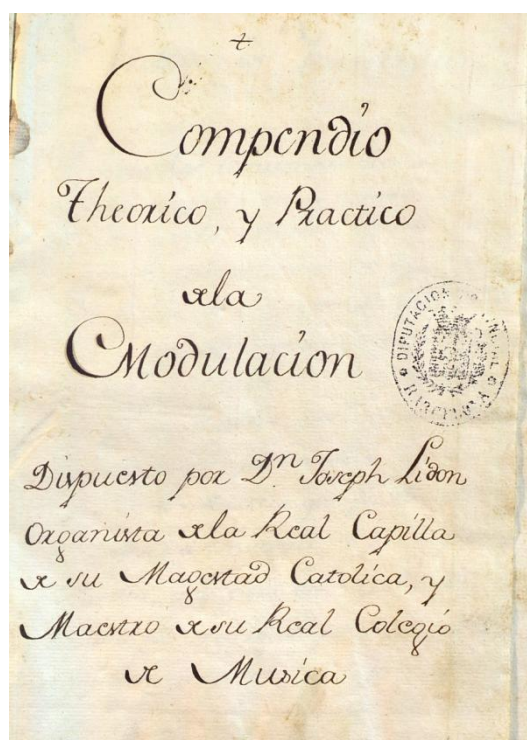 Compendio
Theorico, y Practico
de la
Modulacion
DIPUTACION PROVINCIAL
BARCELONA
Dispuesto por Dn. Joseph Lidon
Organista dela Real Capilla
de su Magestad Catolica, y
Maestro de su Real Colegio
de Musica